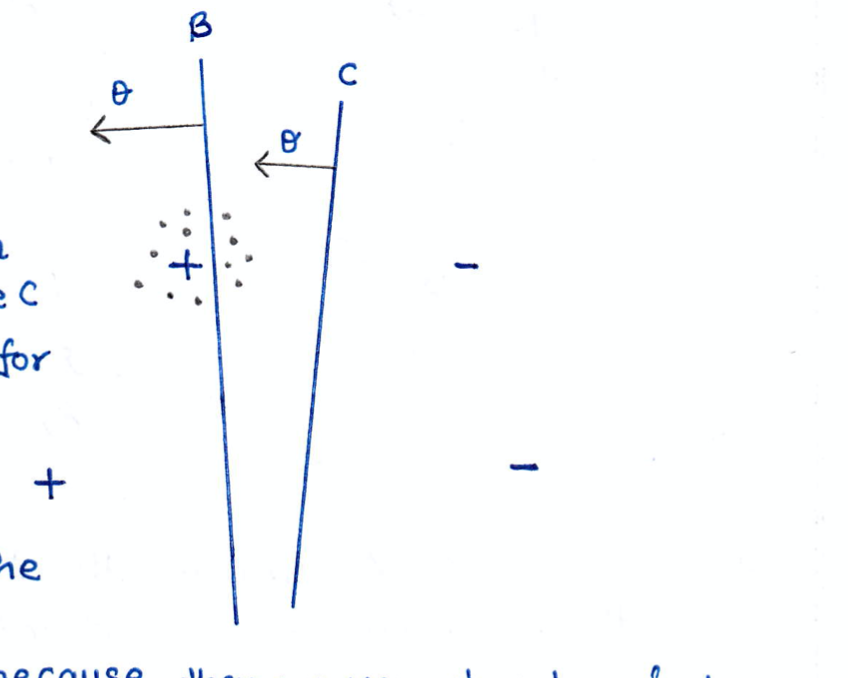 B
C
θ
θ
+
-
e C
for
+
-
he
because